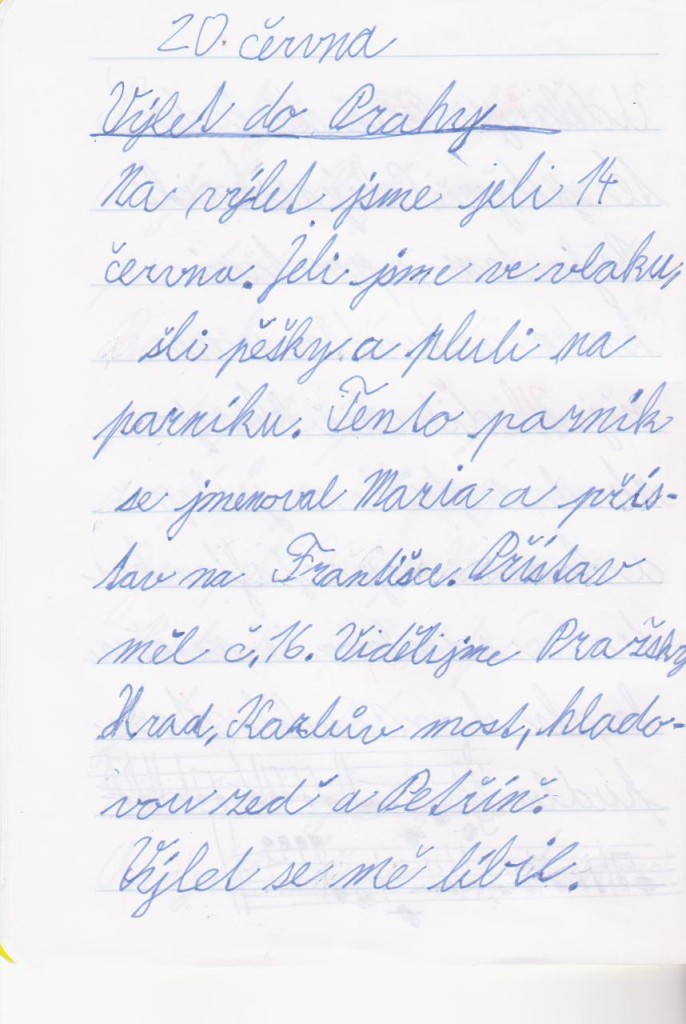 20. června
Výlet do Prahy
Na výlet jsme jeli 14
června. Jeli jsme ve vlaku,
šli pěšky a pluli na
parníku. Tento parník
se jmenoval Maria a přís-
tav na Františce. Přístav
měl č. 16. Vidělijme Pražský
Hrad, Karlův most, hlado-
vou zeď a Petříň.
Výlet se mě líbil.